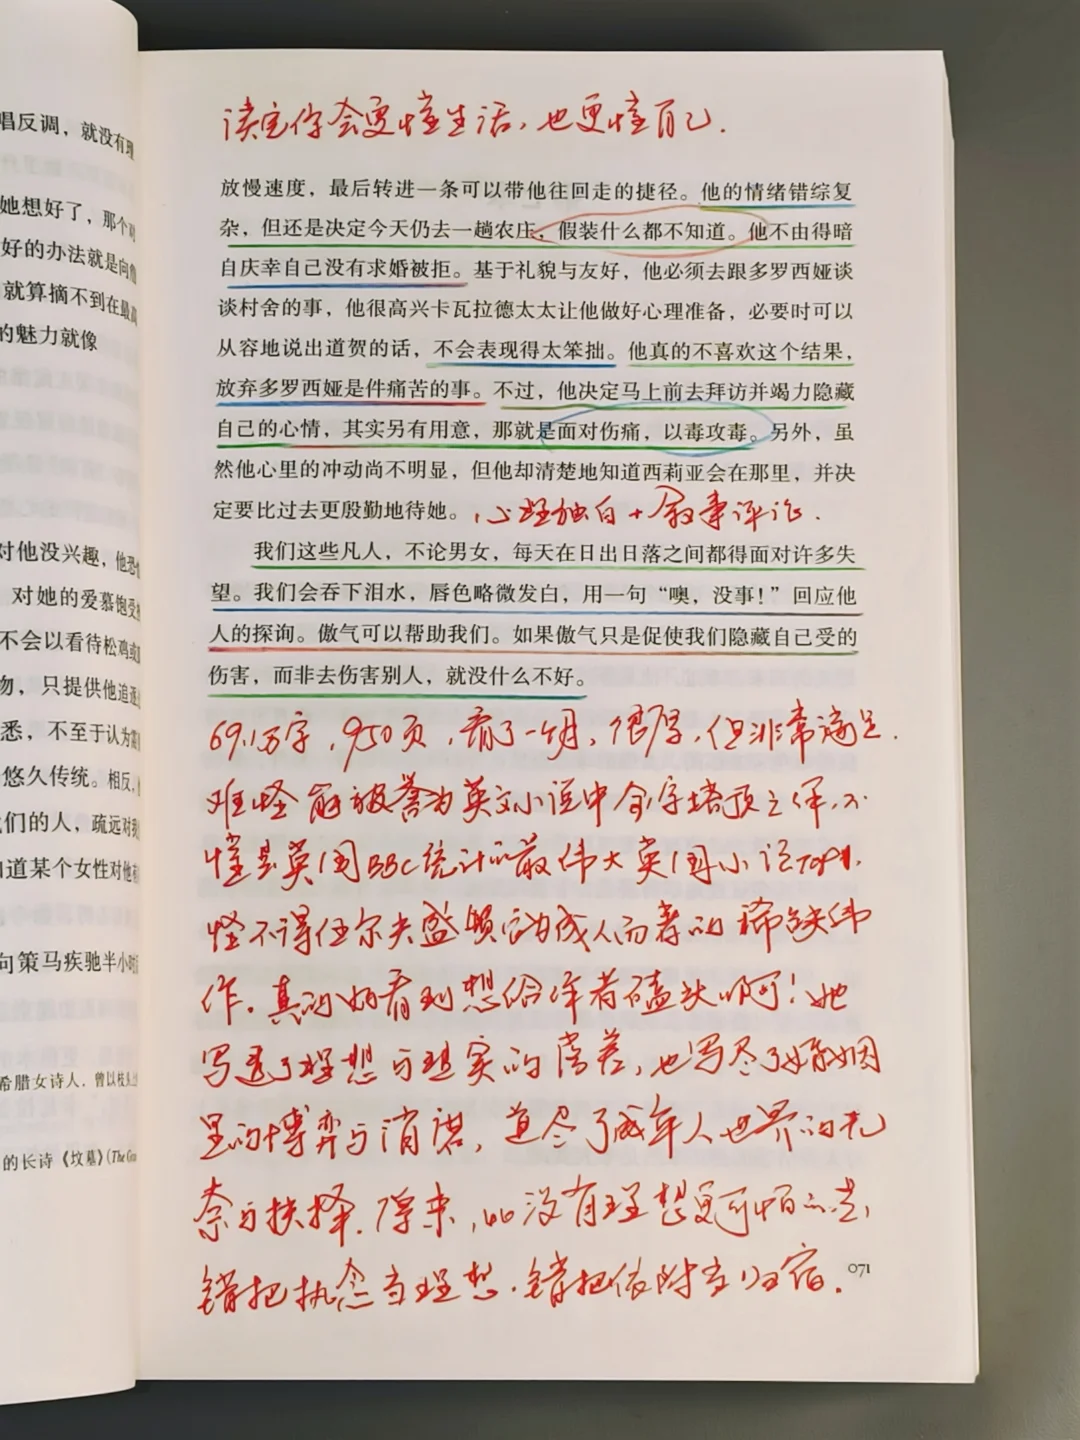 唱反调，就没有理
她想好了，那个对
好的办法就是向
就算摘不到在最高
的魅力就像
对他没兴趣，他恐
对她的爱慕饱受
不会以看待松鸡或
物，只提供他追逐
悉，不至于认为需
悠久传统。相反，
们的人，疏远对
道某个女性对他
句策马疾驰半小时
希腊女诗人，曾以枝头上
的长诗《坟墓》(The Gra
读完你会更懂生活，也更懂自己.
放慢速度，最后转进一条可以带他往回走的捷径。他的情绪错综复
杂，但还是决定今天仍去一趟农庄，假装什么都不知道。他不由得暗
自庆幸自己没有求婚被拒。基于礼貌与友好，他必须去跟多罗西娅谈
谈村舍的事，他很高兴卡瓦拉德太太让他做好心理准备，必要时可以
从容地说出道贺的话，不会表现得太笨拙。他真的不喜欢这个结果，
放弃多罗西娅是件痛苦的事。不过，他决定马上前去拜访并竭力隐藏
自己的心情，其实另有用意，那就是面对伤痛，以毒攻毒。另外，虽
然他心里的冲动尚不明显，但他却清楚地知道西莉亚会在那里，并决
定要比过去更殷勤地待她。心理独白+叙事评论.
我们这些凡人，不论男女，每天在日出日落之间都得面对许多失
望。我们会吞下泪水，唇色略微发白，用一句“噢，没事！”回应他
人的探询。傲气可以帮助我们。如果傲气只是促使我们隐藏自己受的
伤害，而非去伤害别人，就没什么不好。
69.1万字，950页，看了一个月，很厚，但非常满足.
难怪能被誉为英文小说中金字塔顶之作，不
懂是英国BBC统计的最伟大英国小说TOP1.
怪不得伍尔夫盛赞它为成人而著的稀缺伟
作. 真的好看到想给作者磕头啊！她
写透了理想与现实的落差，也写尽了婚姻
里的博弈与消磨，道尽了成年人世界的无
奈与抉择. 原来，比没有理想更可怕的是，
错把执念当理想，错把依附当归宿.
071